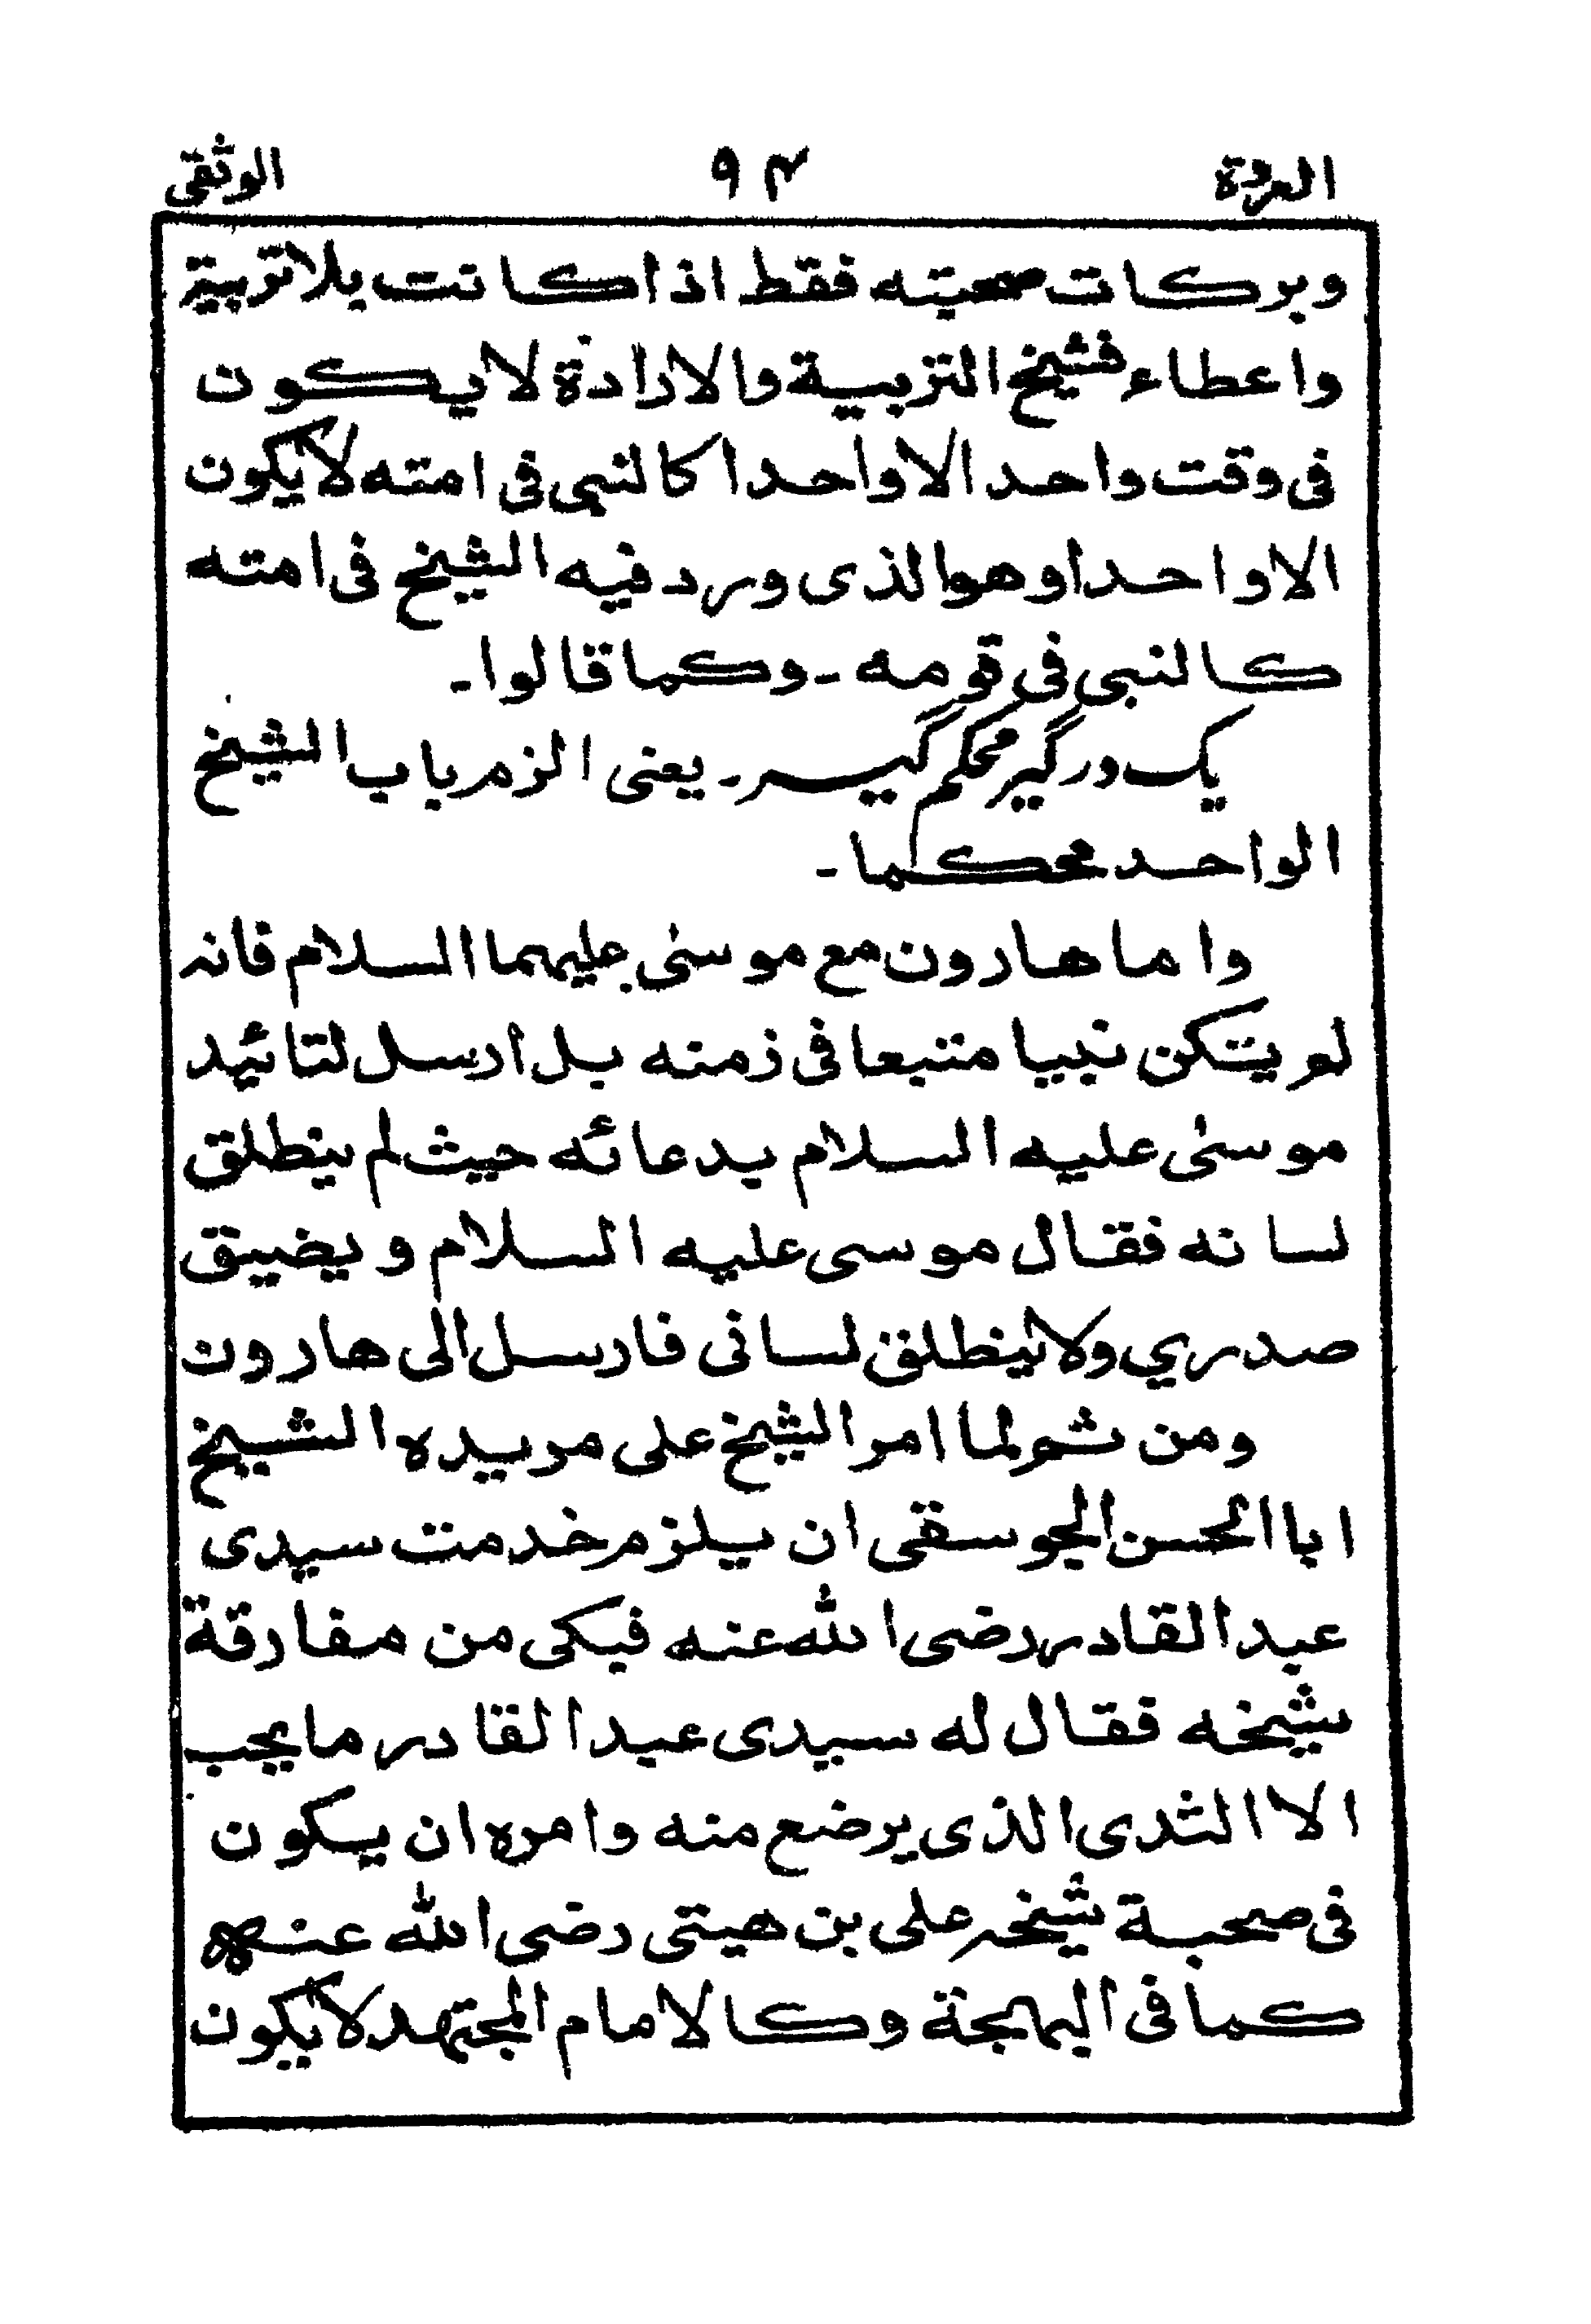 العروة ٩٤ الوثقى
وبركات صحبته فقط اذا كانت بلا تربية
واعطاء فشيخ التربية والارادة لا يكون
فى وقت واحد الا واحدا كالنبى فى امته لا يكون
الا واحدا وهو الذى ورد فيه الشيخ فى امته
كالنبى فى قومه ـ وكما قالوا ـ
يک در گير محکم گير ـ يعنى الزم باب الشيخ
الواحد محكما ـ
واما هارون مع موسىٰ عليهما السلام فانه
لم يكن نبيا متبعا فى زمنه بل ارسل لتائيد
موسىٰ عليه السلام بدعائه حيث لم ينطلق
لسانه فقال موسى عليه السلام و يضيق
صدري ولا ينطلق لسانى فارسل الى هارون
ومن ثم لما امر الشيخ على مريده الشيخ
ابا الحسن الجوسقى ان يلزم خدمت سيدى
عبد القادر رضى الله عنه فبكى من مفارقة
شيخه فقال له سيدى عبد القادر ما يحب
الا الثدى الذى يرضع منه وامره ان يكون
فى صحبة شيخه على بن هيتى رضى الله عنهم
كما فى البهجة وكالامام المجتهد لا يكون